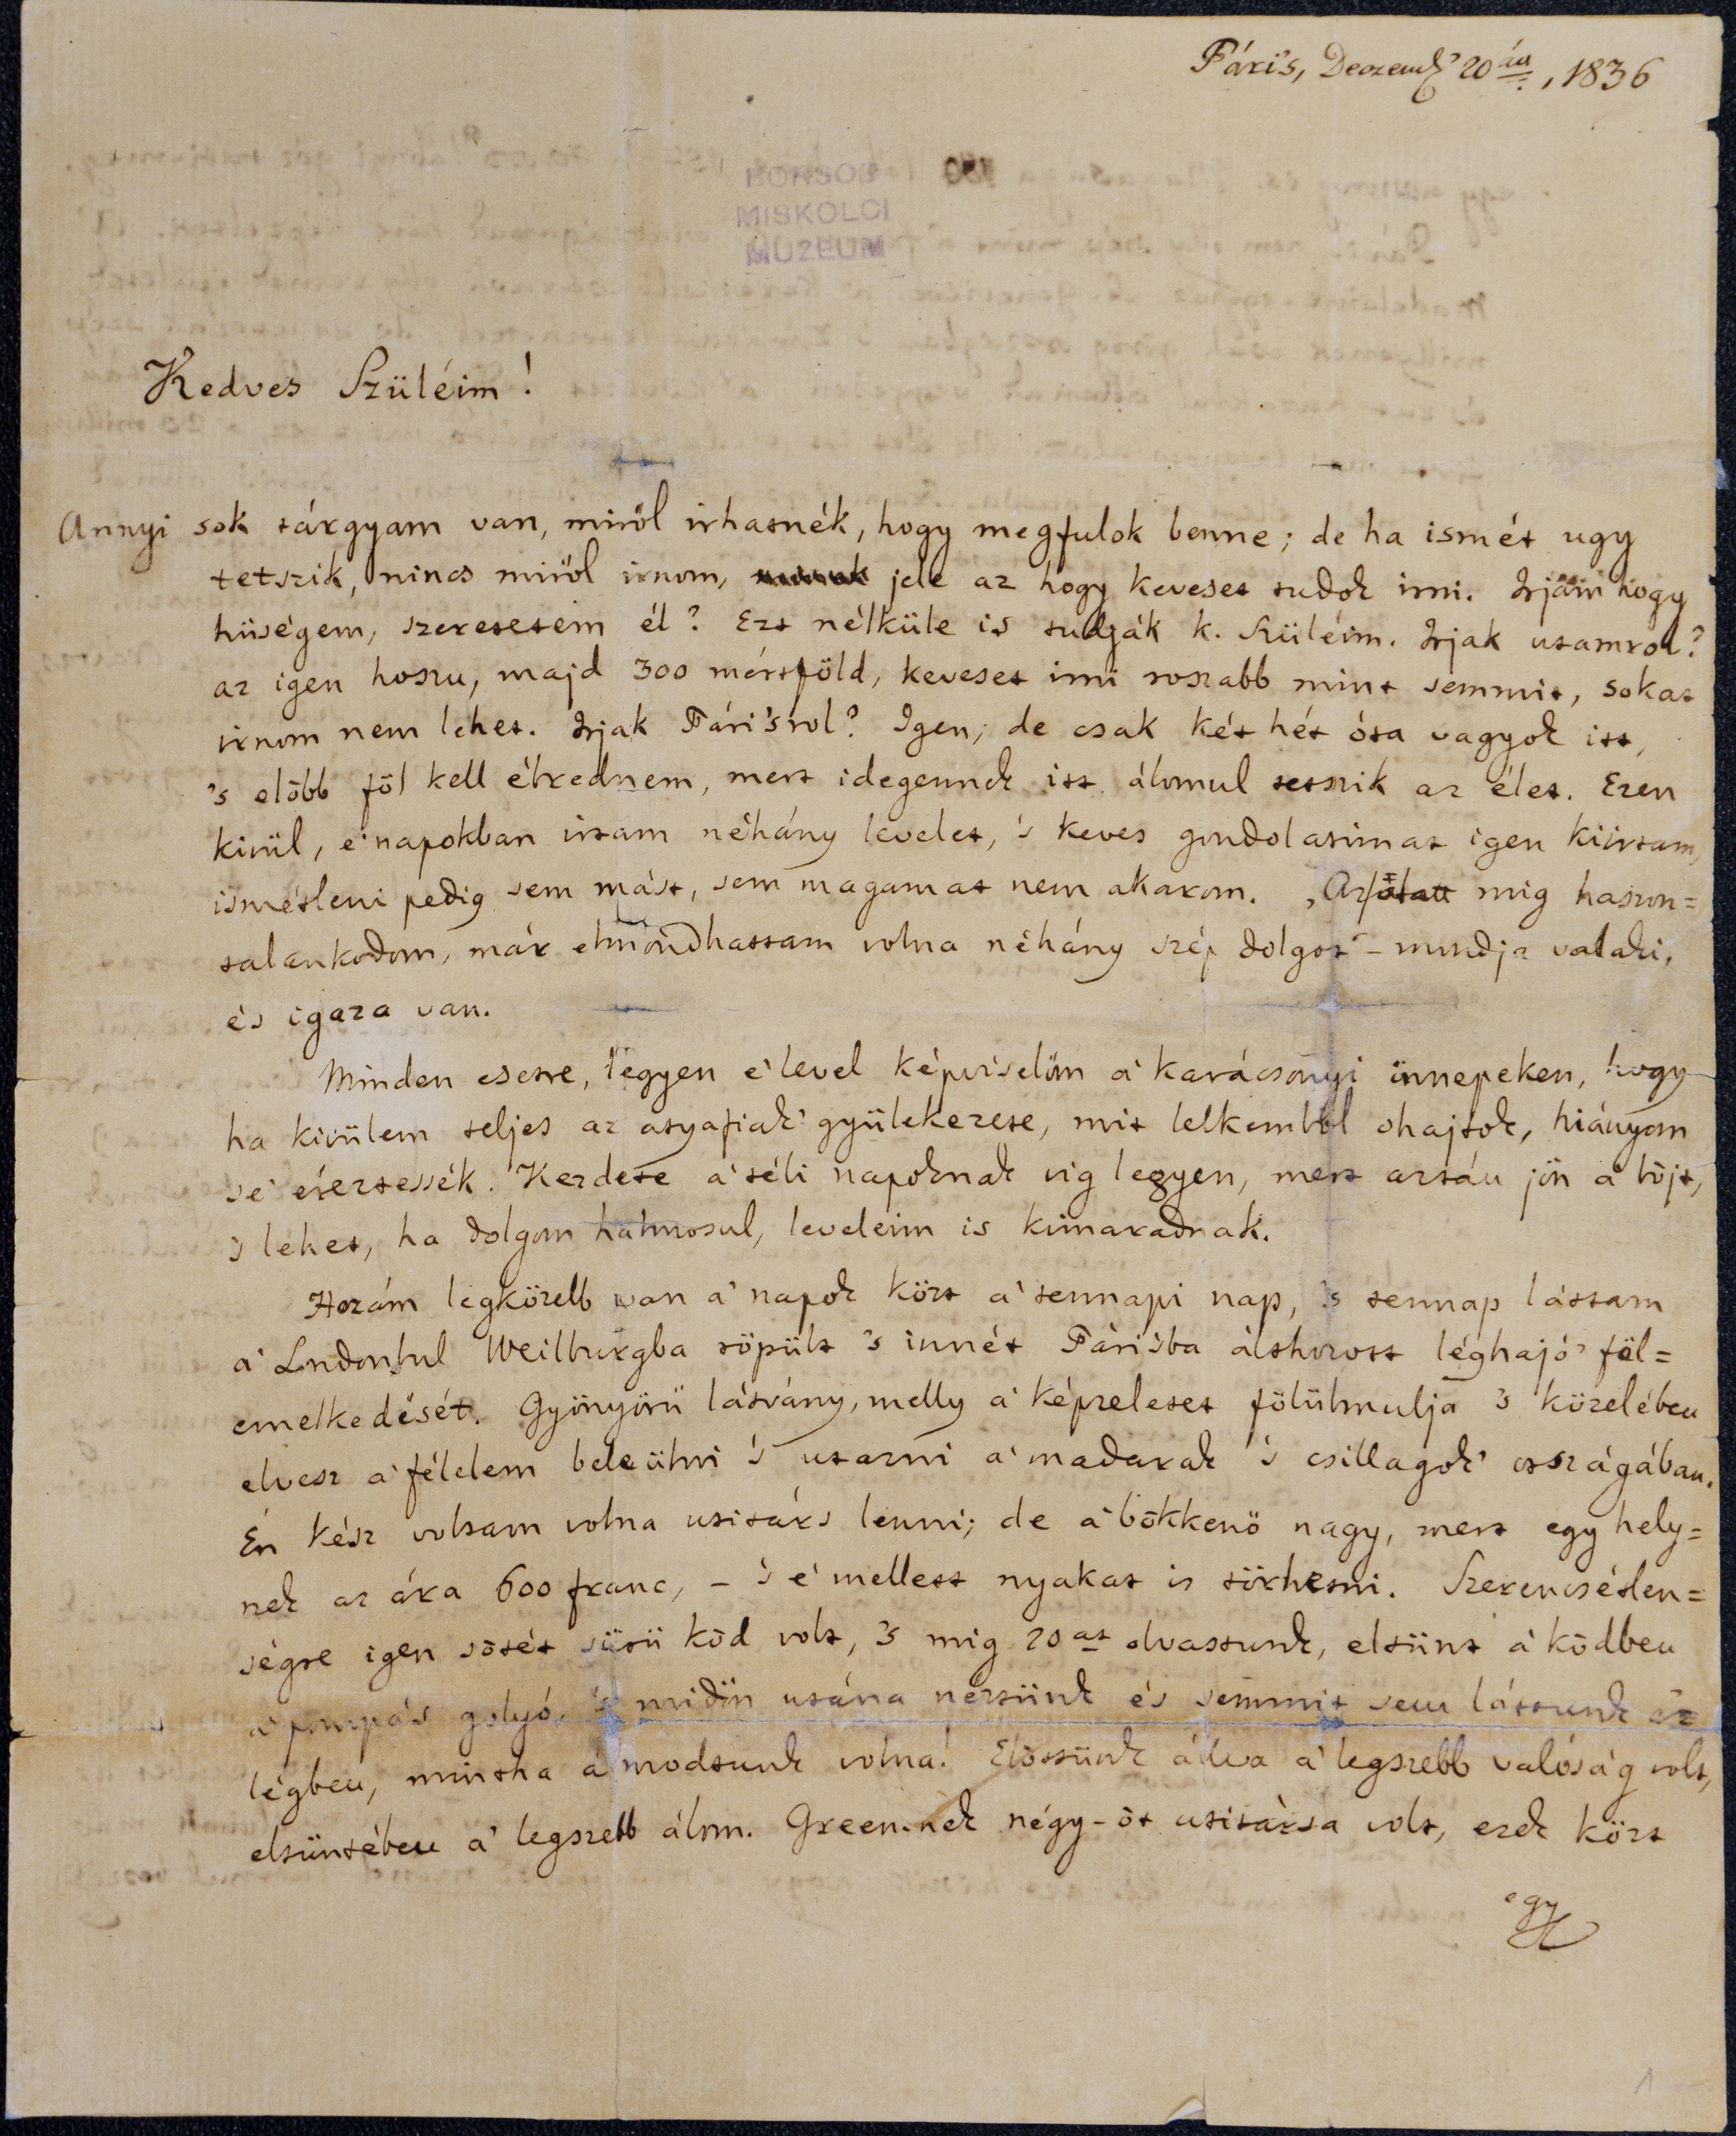 Páris, Decemb' 20án, 1836
BORSOD
MISKOLCI
MUZEUM
Kedves Szüléim!
Annyi sok tárgyam van, miröl irhatnék, hogy megfulok benne; de ha ismét ugy
tetszik, nincs miröl irnom, jele az hogy keveset tudok irni. Irjam hogy
hüségem, szeretetem él? Ezt nélküle is tudják k. Szüléim. Irjak utamrol?
az igen hoszu, majd 300 mértföld, keveset irni roszabb mint semmit, sokat
irnom nem lehet. Irjak Párisrol? Igen; de csak két hét óta vagyok itt,
's elöbb föl kell ébrednem, mert idegennek itt álomul tetszik az élet. Ezen
kivül, e' napokban irtam néhány levelet, 's keves gondolatimat igen kiirtam,
ismételni pedig sem mást, sem magamat nem akarom. „Azalatt mig haszon=
talankodom, már elmondhattam volna néhány szép dolgot" – mondja valaki,
és igaza van.
Minden esetre, legyen e' level képviselöm a' karácsonyi ünnepeken, hogy
ha kivülem teljes az atyafiak' gyülekezete, mit lelkemböl ohajtok, hiányom
se' éreztessék. Kezdete a' téli napoknak vig legyen, mert aztán jön a' böjt,
's lehet, ha dolgom halmosul, leveleim is kimaradnak.
Hozám legközelb van a' napok közt a' tennapi nap, 's tennap láttam
a' Londonbul Weilburgba röpült 's innét Párisba áthozott léghajó' föl=
emelkedését. Gyönyörü látvány, melly a' képzeletet fölülmulja 's közelében
elvesz a' félelem beleülni 's utazni a' madarak 's csillagok' országában.
Én kész voltam volna utitárs lenni; de a' bökkenö nagy, mert egy hely=
nek az ára 600 franc, – 's e' mellett nyakat is törhetni. Szerencsétlen=
ségre igen sötét sürü köd volt, 's mig 20at olvastunk, eltünt a' ködben
a' pompás golyó, 's midön utána néztünk és semmit sem láttunk az
légben, mintha álmodtunk volna! Elöttünk állva a' legszebb valóság volt,
eltüntében a' legszebb álom. Green-nek négy-öt utitársa volt, ezek közt
egy
1